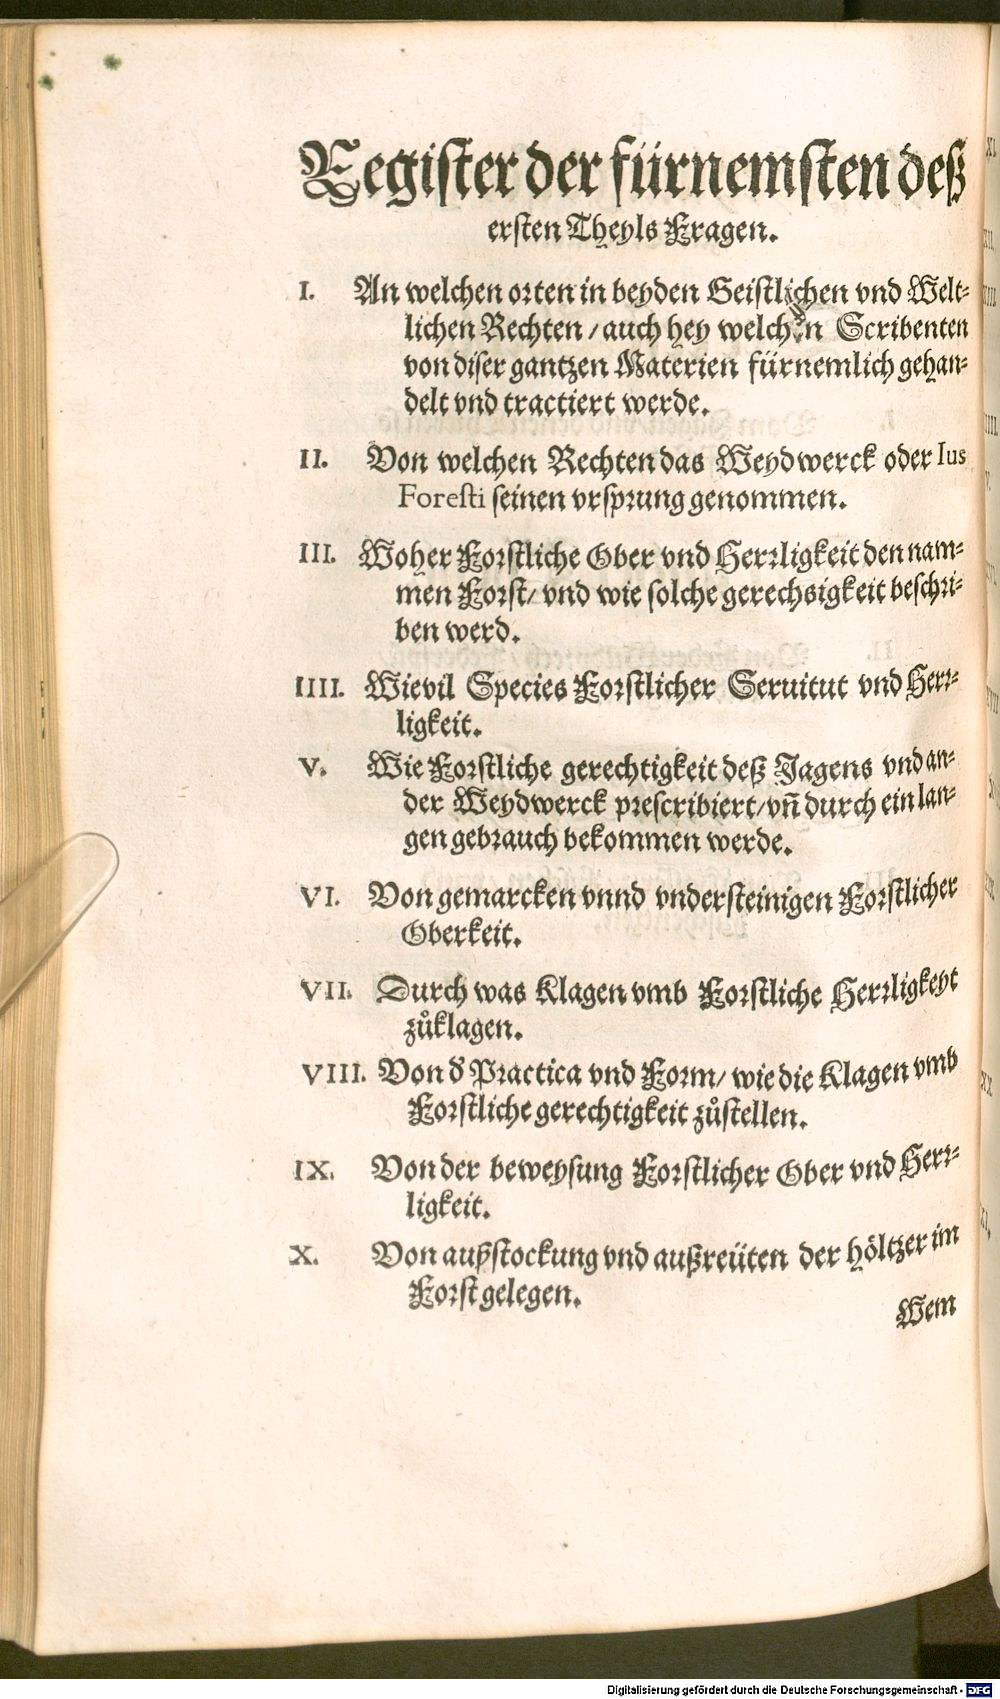 Register der fürnemsten deß
ersten Theyls Fragen.
I. An welchen orten in beyden Geistlichen vnd Welt-
lichen Rechten / auch hey welchen Scribenten
von diser gantzen Materien fürnemlich gehan-
delt vnd tractiert werde.
II. Von welchen Rechten das Weydwerck oder Ius
Foresti seinen vrsprung genommen.
III. Woher Forstliche Ober vnd Herrligkeit den nam-
men Forst / vnd wie solche gerechsigkeit beschri-
ben werd.
IIII. Wievil Species Forstlicher Seruitut vnd Herr-
ligkeit.
V. Wie Forstliche gerechtigkeit deß Jagens vnd an-
der Weydwerck prescribiert / vñ durch ein lan-
gen gebrauch bekommen werde.
VI. Von gemarcken vnnd vndersteinigen Forstlicher
Oberkeit.
VII. Durch was Klagen vmb Forstliche Herrligkeyt
zůklagen.
VIII. Von d' Practica vnd Form / wie die Klagen vmb
Forstliche gerechtigkeit zůstellen.
IX. Von der beweysung Forstlicher Ober vnd Herr-
ligkeit.
X. Von außstockung vnd außreüten der höltzer im
Forst gelegen.
Wem
Digitalisierung gefördert durch die Deutsche Forschungsgemeinschaft - DFG